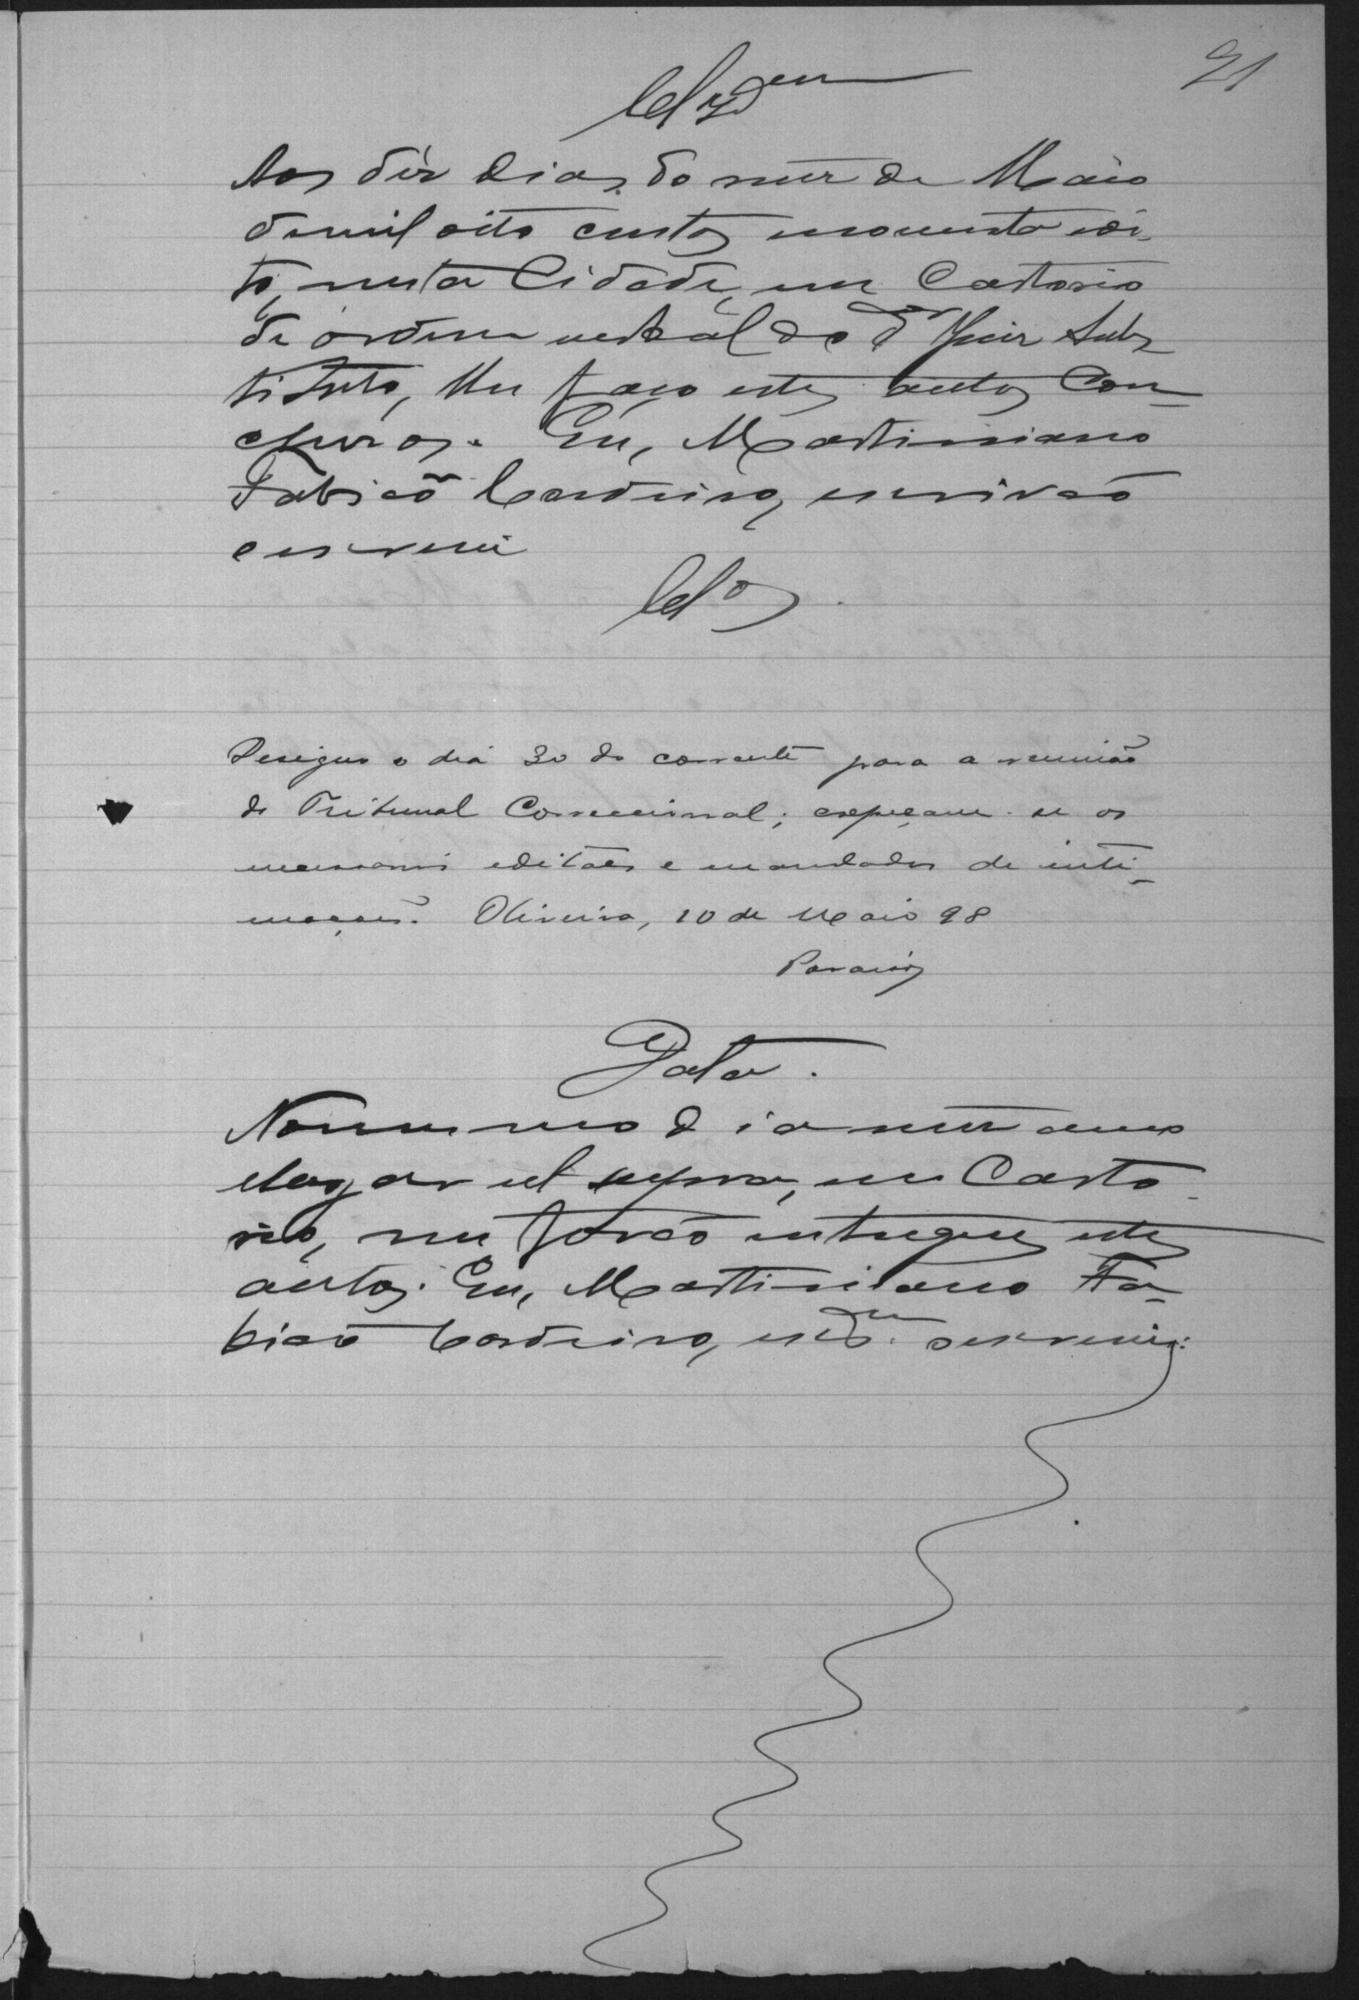 21
Clzam
Aos dez dias do mez de Maio
de mil oito centos noventa e oi-
to, nesta Cidade, em Cartorio
de ordem verbal do Dr Juiz Subs
tituto, lhe faço estes autos con-
cluzos. Eu, Martiniano
Fabião Cordeiro, escrivão
escrevi
Clos
Designo o dia 30 do corrente para a reunião
do Tribunal Correccional; expeçam-se os
necessarios editaes e mandados de inti-
mação. Oliveira, 10 de Maio 98
Data.
No mesmo dia mez anno
e logar ut supra, em Carto-
rio, me forão entregues estes
autos. Eu, Martiniano Fa-
bião Cordeiro, escrm. o escrevi: